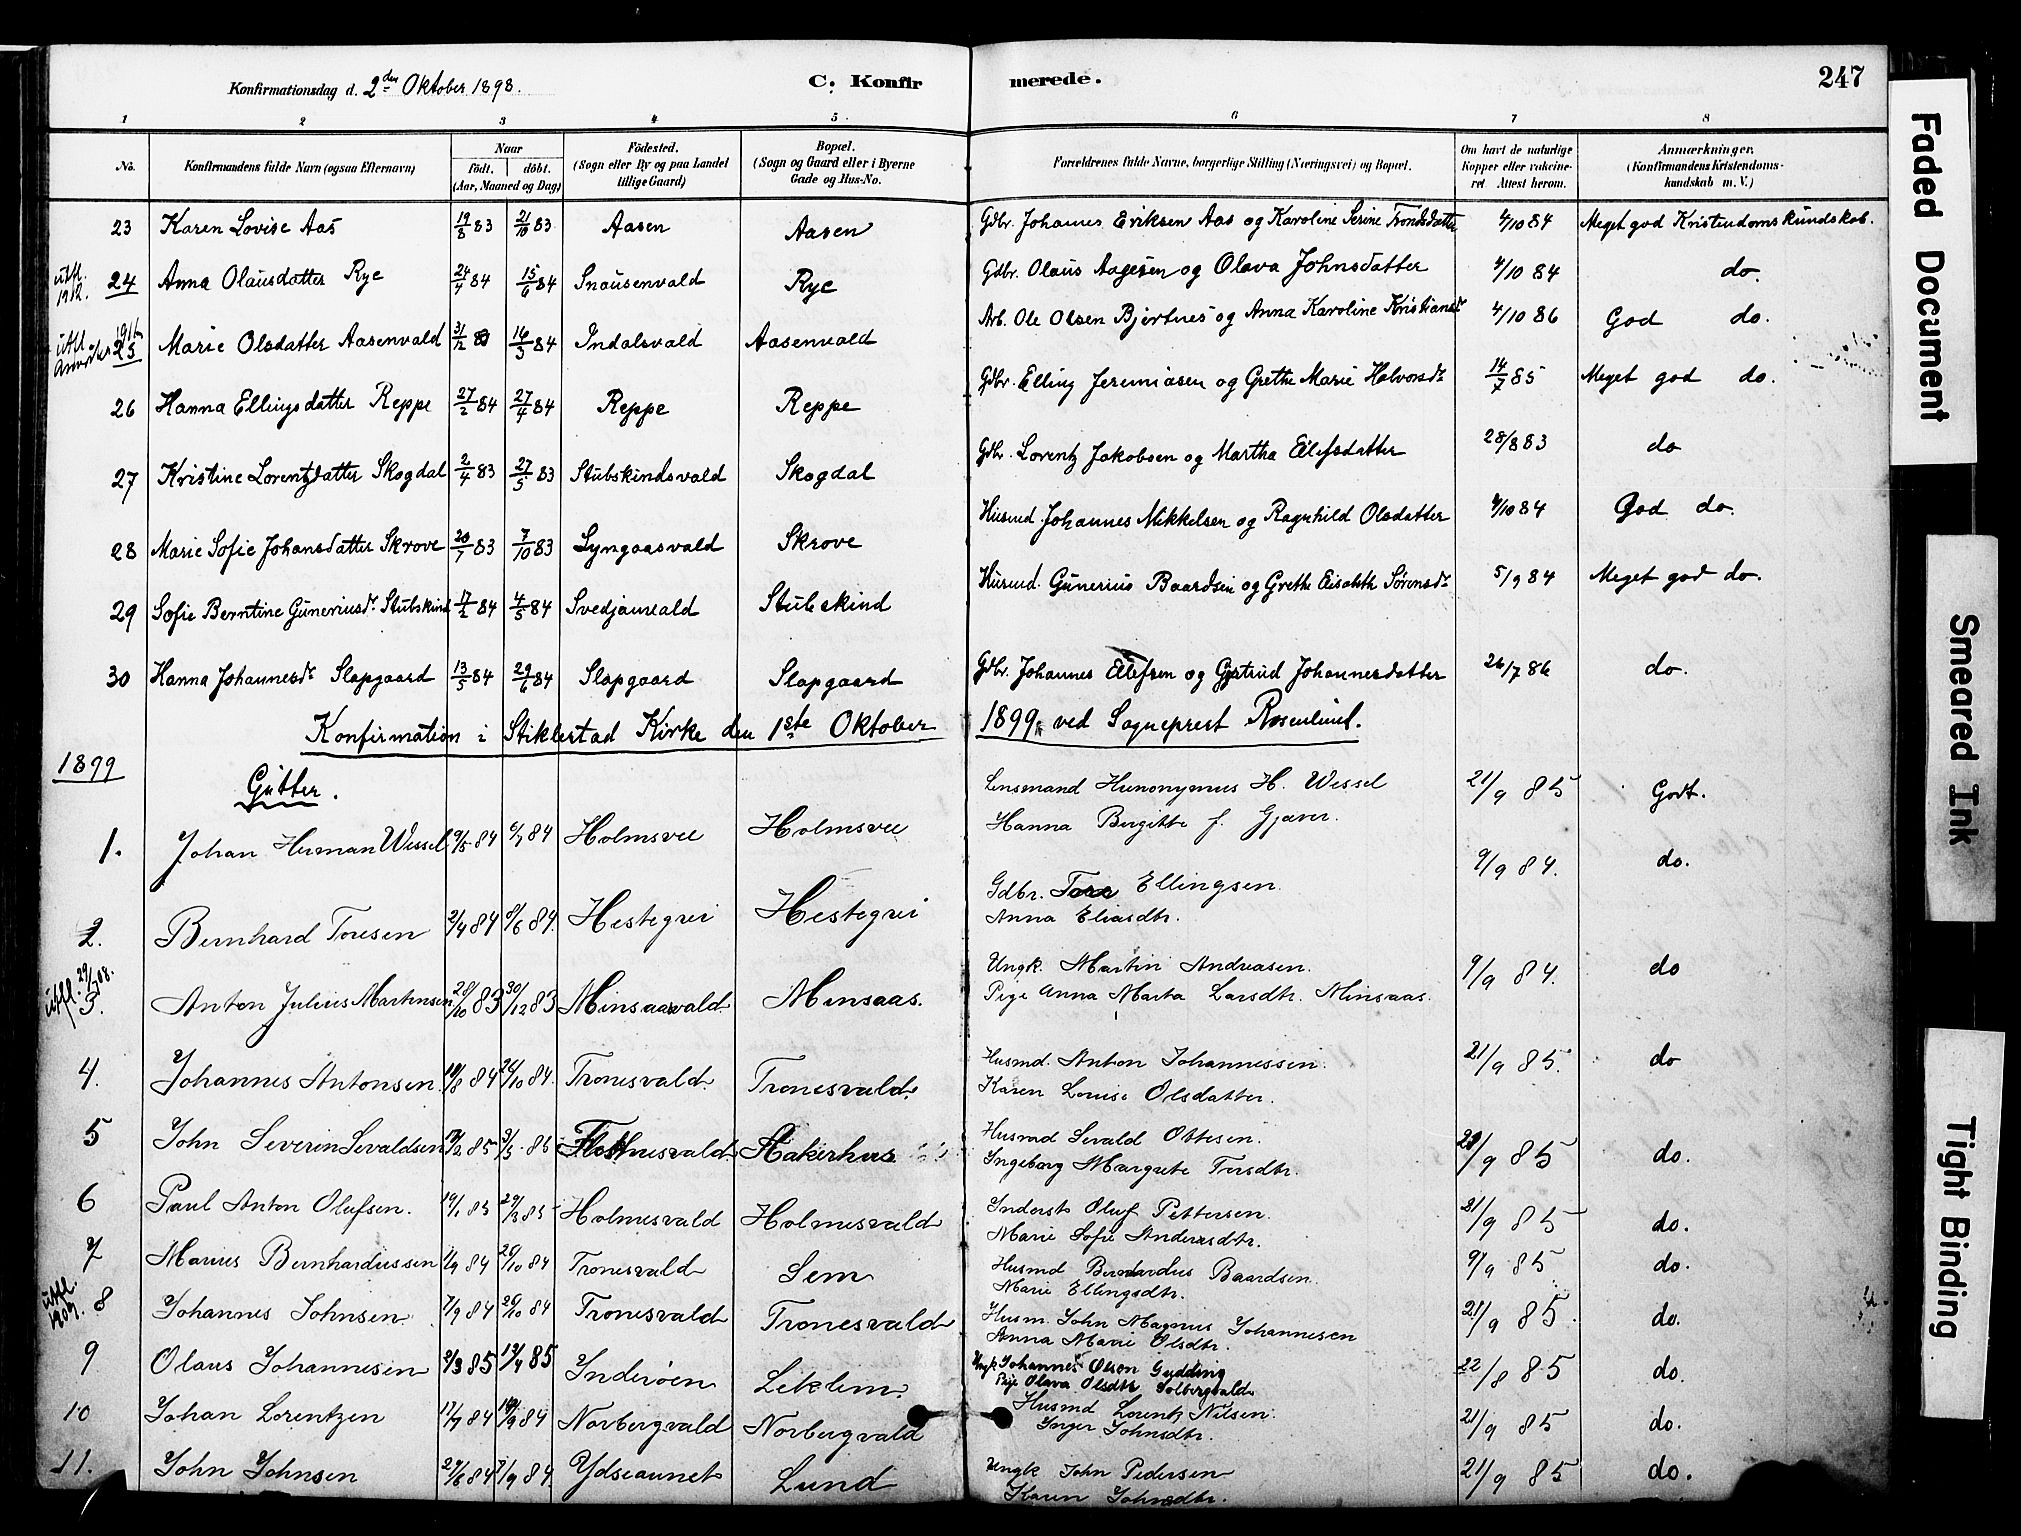 Konfirmationsdag d. 2den Oktober 1898. C. Konfirmerede. 247
1 2 3 4 5 6 7 8
No. Konfirmandens fulde Navn (ogsaa Efternavn) Naar født. døbt. (Aar, Maaned og Dag) Fødested. (Sogn eller By og paa Landet tillige Gaard) Bopæl. (Sogn og Gaard eller i Byerne Gade og Hus-No. Forældrenes fulde Navne, borgerlige Stilling (Næringsvei) og Bopæl. Om havt de naturlige Kopper eller vakcineret Attest herom. Anmærkninger. (Konfirmandens Kristendomskundskab m. V.)
23 Karen Lovise Aas 19/8 83 21/10 83 Aasen Aasen Gdbr. Johannes Eriksen Aas og Karoline Serine Trondsdatter 4/10 84 Meget god Kristendomskundskab.
utfl. 1912. 24 Anna Olausdatter Rye 24/4 84 15/6 84 Snausenvald Rye Gdbr. Olaus Aagesen og Olava Johnsdatter 4/10 84 do.
utfl. 1911 25 Marie Olsdatter Aasenvald 31/12 83 16/3 84 Indalsvald Aasenvald Arb. Ole Olsen Bjørtnes og Anna Karoline Kristiansdr 4/10 86 God do.
26 Hanna Ellingsdatter Reppe 27/2 84 27/4 84 Reppe Reppe Gdbr. Elling Jeremiasen og Grethe Marie Halvorsdr 14/7 85 Meget god do.
27 Kristine Lorentzdatter Skogdal 2/4 83 27/5 83 Stubskindsvald Skogdal Gdbr. Lorentz Jakobsen og Martha Eilefsdatter 28/8 83 do
28 Marie Sofie Johansdatter Skrove 20/7 83 7/10 83 Lyngaasvald Skrove Husmd. Johannes Mikkelsen og Ragnhild Olsdatter 4/10 84 God do.
29 Sofie Berntine Gunerius dr. Stubskind 17/2 84 4/5 84 Svedjanvald Stubskind Husmd. Gunerius Baardsen og Grethe Elisabeth Sørensdr 5/9 84 Meget god do.
30 Hanna Johannesdr Slapgaard 13/5 84 29/6 84 Slapgaard Slapgaard Gdbr. Johannes Ellefsen og Gjertrud Johannesdatter 26/7 86 do.
Konfirmation i Stiklestad Kirke den 1ste Oktober 1899 ved Sogneprest Rosenlund.
1899
Gutter.
1. Johan Herman Wessel 9/5 84 6/7 84 Holmsvee Holmsvee Lensmand Hieronymus H. Wessel 21/9 85 Godt.
Hanna Birgitte f. Gjæver.
2. Bernhard Toresen 2/4 84 8/6 84. Hestegrei Hestegrei Gdbr. Tore Ellingsen 9/9 84. do.
Anna Eliasdtr.
utfl. 29/1 08. 3. Anton Julius Martinsen 28/10 83 30/12 83 Minsaasvald Minsaas. Ungk. Martin Andreasen. 9/9 84. do
Pige Anna Marta Larsdtr. Minsaas.
4. Johannes Antonsen 19/8 84 26/10 84. Tronesvald. Tronesvald. Husmd. Anton Johannessen. 21/9 85. do
Karen Louise Olsdatter.
5 John Severin Sevaldsen 12/2 85 3/5 85 Hakerhus Husmd Sevald Ottesen. 21/9 85 do.
Ingeborg Margrete Toresdtr.
6 Paul Anton Olufsen. 19/1 85 29/3 85 Holmesvald Holmesvald Inderst Oluf Pettersen. 21/9 85 do.
Marie Sofie Andersdtr.
7 Marius Bernhardussen 1/9 84 26/10 84 Tronesvald Sem Husmd Bernhardus Baardsen. 9/9 85 do.
Marie Ellingsdtr.
utfl. 1907. 8 Johannes Johnsen 7/9 84 26/10 84 Tronesvald Tronesvald Husm. John Magnus Johannesen 21/9 85. do.
Anna Marie Olsdtr.
9 Olaus Johannesen 2/3 85 12/4 85 Inderøen Leklem. Ungk. Johannes Olsen Gudding 22/8 85 do.
Pige Olava Olsdtr Solbergvald.
10 Johan Lorentzen 17/7 84 14/9 84 Norbergvald Norbergvald Husmd Lorentz Nilsen. 21/9 85 do.
Inger Johnsdtr.
11. John Johnsen 27/6 84 7/9 84. Ydseaunet Lund Ungk John Pedersen 21/9 85 do.
Karen Johnsdtr.
Faded Document
Smeared Ink
Tight Binding